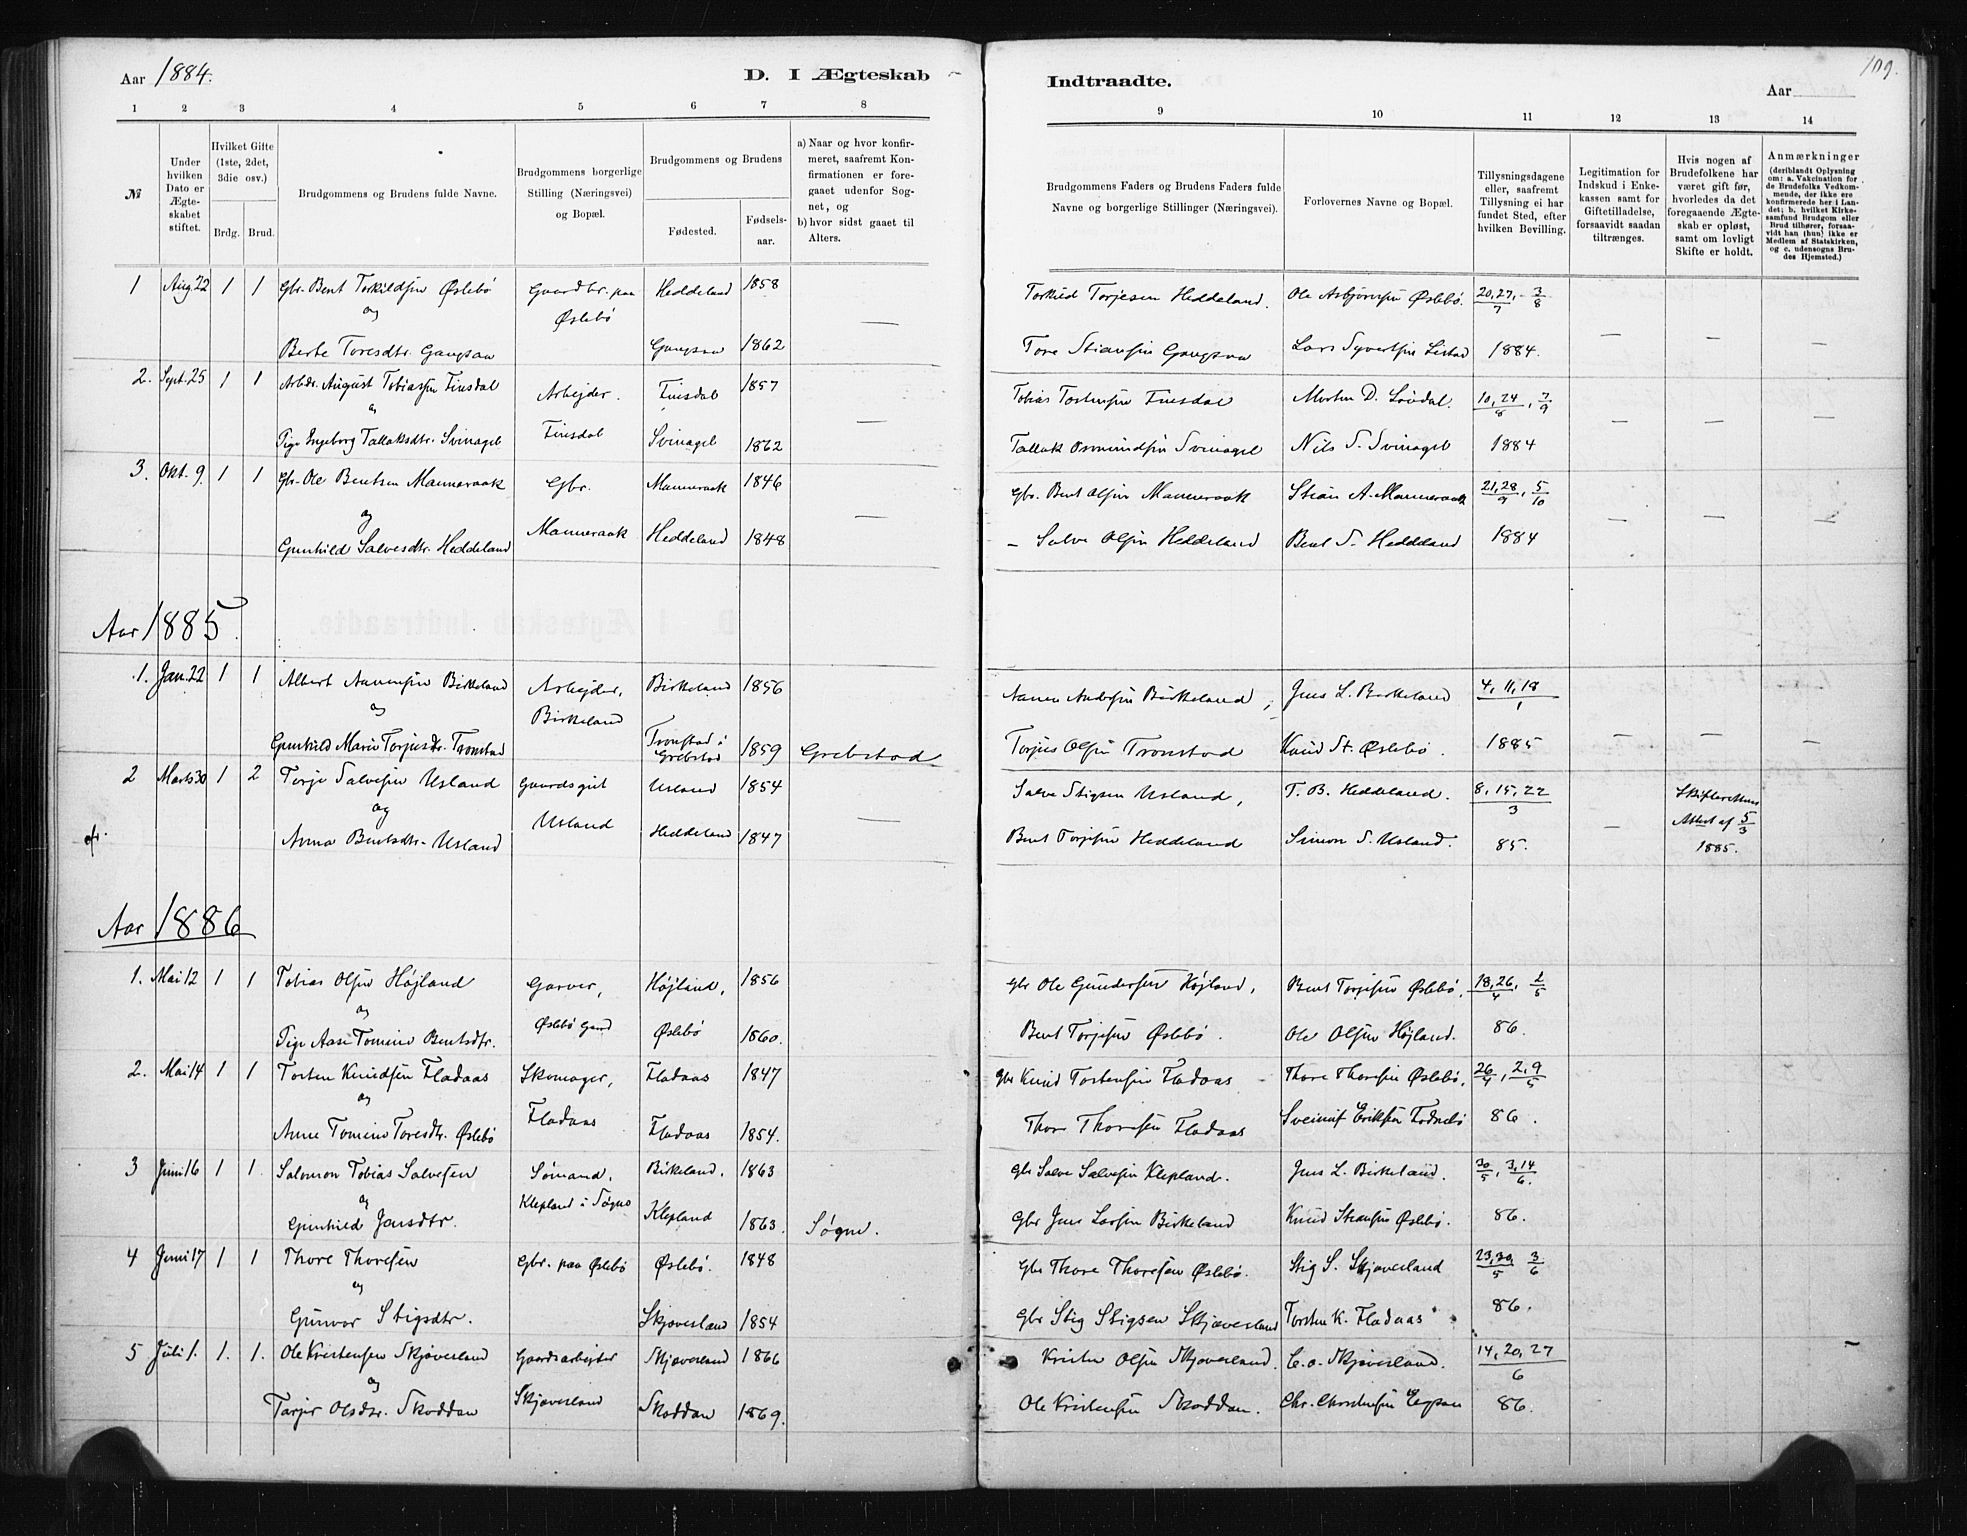 Aar 1884. D. I Ægteskab Indtraadte. Aar 109.
1 2 3 4 5 6 7 8 9 10 11 12 13 14
№
Under hvilken Dato er Ægteskabet stiftet.
Hvilket Gifte (1ste, 2det, 3die osv.)
Brdg. Brud.
Brudgommens og Brudens fulde Navne.
Brudgommens borgerlige Stilling (Næringsvei) og Bopæl.
Brudgommens og Brudens
Fødested. Fødsels-aar.
a) Naar og hvor konfirmeret, saafremt Konfirmationen er foregaaet udenfor Sognet, og
b) hvor sidst gaaet til Alters.
Brudgommens Faders og Brudens Faders fulde Navne og borgerlige Stillinger (Næringsvei).
Forlovernes Navne og Bopæl.
Tillysningsdagene eller, saafremt Tillysning ei har fundet Sted, efter hvilken Bevilling.
Legitimation for Indskud i Enkekassen samt for Giftetilladelse, forsaavidt saadan tiltrænges.
Hvis nogen af Brudefolkene har været gift før, hvorledes da det foregaaende Ægteskab er opløst, samt om lovligt Skifte er holdt.
Anmærkninger (deriblandt Oplysning om: a. Vakcination for de Brudefolks Vedkommende, der ikke ere konfirmerede her i Landet; b. hvilket Kirkesamfund Brudgom eller Brud tilhører, forsaavidt han (hun) ikke er Medlem af Statskirken, og c. udensogns Brudes Hjemsted.)
1 Aug 22 1 1 Gbr. Bent Torkildsen Øslebö Gaardbr. paa Heddeland 1858 Torkild Torjesen Heddeland. Ole Asbjörnsen Øslebö. 20,27/7, 3/8
og Øslebö —
Berte Toresdtr. Gangsaa Gangsaa 1862 Tore Stiansen Gangsaa Lars Syvertsen Listad 1884. — — —
2. Sept. 25 1 1 Arbdr. August Tobiassen Finsdal Arbejder. Finsdal 1857 Tobias Tostensen Finsdal Morten D. Lövdal. 10,24/8, 7/9
og —
Pige Ingeborg Tallaksdtr. Svinagel Finsdal Svinagel 1862 Tallak Osmundsen Svinagel Nils S. Svinagel 1884 — — —
3. Okt. 9 1 1 Gbr. Ole Bentsen Manneraak Gbr. Manneraak 1846 Gbr. Bent Olsen Manneraak Stian A. Manneraak 21,28/9, 5/10
og —
Gunhild Salvesdtr. Heddeland Manneraak Heddeland 1848 — Salve Olsen Heddeland Bent S. Heddeland 1884 — — —
Aar 1885.
1. Jan. 22 1 1 Albert Aanensen Birkeland Arbejder, Birkeland 1856 Aanen Andersen Birkeland, Jens L. Birkeland 4, 11, 18/1
og Birkeland
Gunhild Marie Torjusdtr. Tronstad Tronstad i Grebstad 1859 Grebstad Torjus Olsen Tronstad Knud St. Øslebö. 1885 — — —
2 Marts 30 1 2 Torje Salvesen Usland Gaardsgut Usland 1854 Salve Stigsen Usland, T. B. Heddeland. 8, 15, 22/3 Skifterettens
og Usland — — Attest af 5/3
Anna Bentsdtr. Usland Heddeland 1847 Bent Torjesen Heddeland Simon S. Usland. 85. 1885.
Aar 1886
1. Mai 12 1 1 Tobias Olsen Højland Garver, Højland, 1856 Gbr Ole Gundersen Højland, Bent Torjesen Øslebö, 18,26/4, 2/5
og
Pige Aase Tomine Bentsdtr. Øslebö Gaard Øslebö 1860. Bent Torjesen Øslebö. Ole Olsen Højland. 86.
2. Mai 14 1 1 Torsten Knudsen Fladaas Skomager, Fladaas 1847 Gbr Knud Torstensen Fladaas Thore Thoresen Øslebö, 26/4, 2,9/5
og
Anne Tomine Toresdtr. Øslebö Fladaas Fladaas 1854. Thore Thoresen Fladaas Sveinuf Eriksen 86.
3 Juni 16 1 1. Salomon Tobias Salvesen Sømand, Birkeland, 1863 Gbr Salve Salvesen Klepland. Jens L. Birkeland. 30/5, 3,14/6.
og Klepland i Søgne
Gunhild Jensdtr. Klepland 1863. Søgne. Gbr Jens Larsen Birkeland Knud Stiansen Øslebö. 86.
4 Juni 17 1 1 Thore Thoresen Gbr. paa Øslebö Øslebö. 1848 Gbr Thore Thoresen Øslebö. Stig S. Skjæverland 23,30/5 3/6
og
Gunvor Stigsdtr. Skjæverland 1854 Gbr Stig Stigsen Skjæverland Torsten K. Fladaas 86.
5 Juli 1. 1. 1. Ole Kristensen Skjæverland Gaardsarbejder Skjæverland 1866 Kristen Olsen Skjæverland. C. O. Skjæverland. 14, 20, 27/6
og Skjæverland
Tarjer Olsdtr. Skoddan Skoddan 1869. Ole Kristensen Skoddan. Chr. Christensen 86.